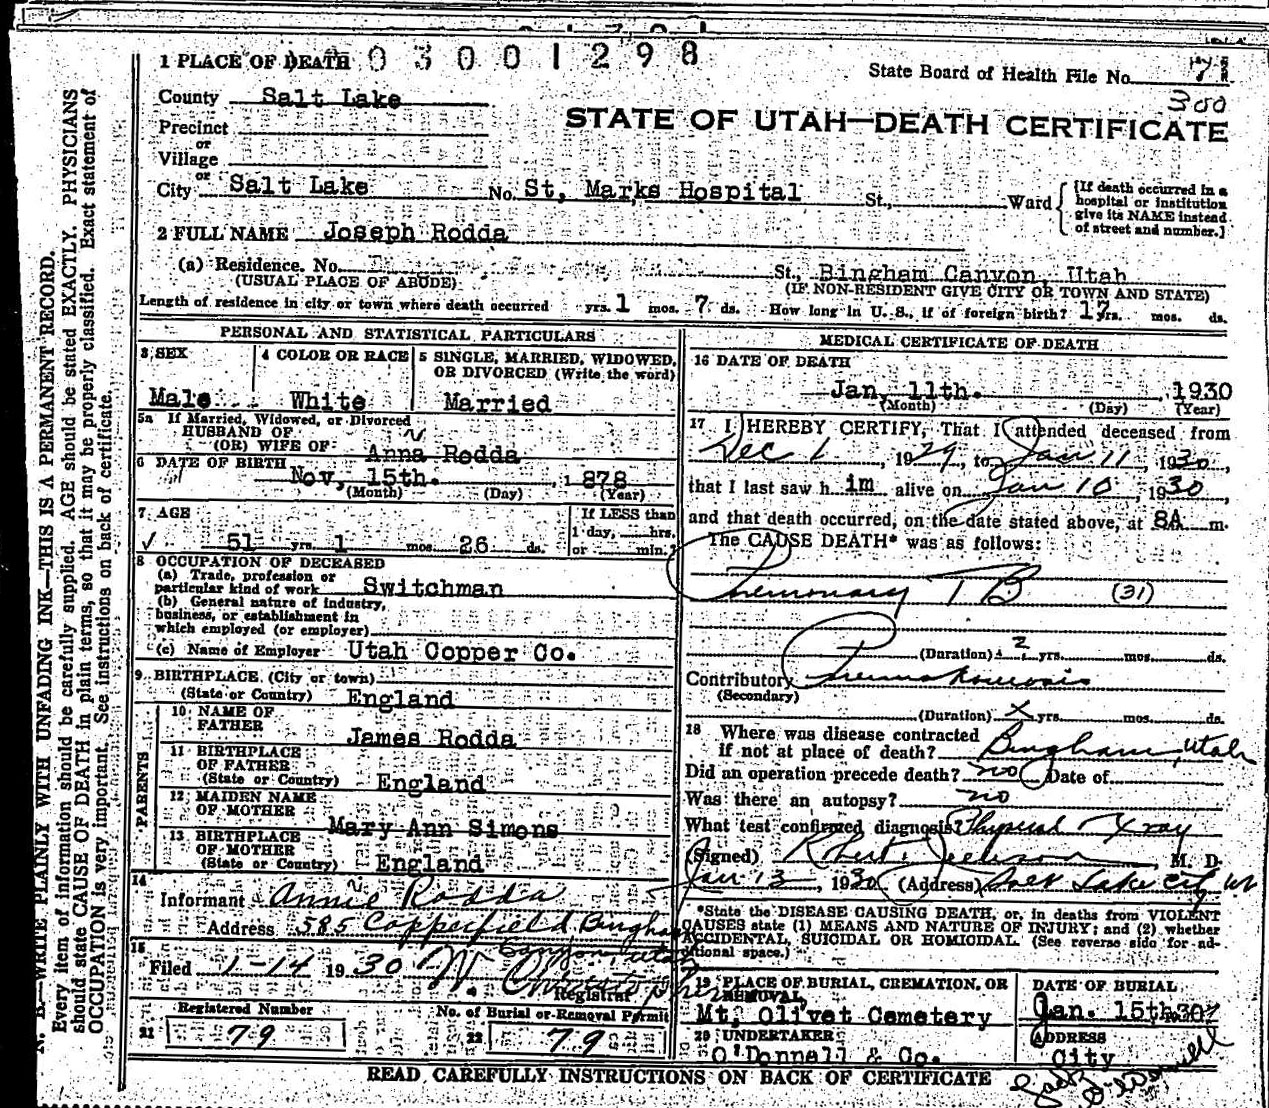 03001298
1 PLACE OF DEATH
State Board of Health File No. 7
300
County Salt Lake
STATE OF UTAH—DEATH CERTIFICATE
Precinct
or
Village
or
City Salt Lake No. St, Marks Hospital St., Ward
[If death occurred in a
hospital or institution
give its NAME instead
of street and number.]
2 FULL NAME Joseph Rodda
(a) Residence. No. St., Bingham Canyon, Utah
(USUAL PLACE OF ABODE) (IF NON-RESIDENT GIVE CITY OR TOWN AND STATE)
Length of residence in city or town where death occurred yrs. 1 mos. 7 ds. How long in U. S., if of foreign birth? yrs. mos. ds.
PERSONAL AND STATISTICAL PARTICULARS
3 SEX
Male
4 COLOR OR RACE
White
5 SINGLE, MARRIED, WIDOWED,
OR DIVORCED (Write the word)
Married
5a If Married, Widowed, or Divorced
HUSBAND OF
(OR) WIFE OF Anna Rodda
6 DATE OF BIRTH Nov, 15th. , 1878
(Month) (Day) (Year)
7 AGE
✓ 51 yrs. 1 mos. 26 ds.
If LESS than
1 day, hrs.
or min.?
8 OCCUPATION OF DECEASED
(a) Trade, profession or
particular kind of work Switchman
(b) General nature of industry,
business, or establishment in
which employed (or employer)
(c) Name of Employer Utah Copper Co.
9 BIRTHPLACE (City or town)
(State or Country) England
PARENTS
10 NAME OF
FATHER James Rodda
11 BIRTHPLACE
OF FATHER
(State or Country) England
12 MAIDEN NAME
OF MOTHER Mary Ann Simons
13 BIRTHPLACE
OF MOTHER
(State or Country) England
14
Informant Annie Rodda
Address 585 Copperfield Bingham
Canyon Utah
15
Filed 1-14 1930 W. Christopherson
Registrar
Registered Number
21 79
No. of Burial or Removal Permit
22 79
MEDICAL CERTIFICATE OF DEATH
16 DATE OF DEATH
Jan, 11th. , 1930
(Month) (Day) (Year)
17 I HEREBY CERTIFY, That I attended deceased from
Dec 1, 1929, to Jan 11, 1930,
that I last saw him alive on Jan 10, 1930,
and that death occurred, on the date stated above, at 8A m.
The CAUSE DEATH* was as follows:
T B (31)
(Duration) 2 yrs. mos. ds.
Contributory
(Secondary)
(Duration) x yrs. mos. ds.
18 Where was disease contracted
if not at place of death? Bingham, Utah
Did an operation precede death? no Date of
Was there an autopsy? no
What test confirmed diagnosis? Physical Xray
(Signed) Robert, M. D.
Jan 13, 1930 (Address) Salt Lake City Ut
*State the DISEASE CAUSING DEATH, or, in deaths from VIOLENT
CAUSES state (1) MEANS AND NATURE OF INJURY; and (2) whether
ACCIDENTAL, SUICIDAL OR HOMICIDAL. (See reverse side for ad-
ditional space.)
19 PLACE OF BURIAL, CREMATION, OR
REMOVAL,
Mt, Olivet Cemetery
DATE OF BURIAL
Jan. 15th
20 UNDERTAKER
O'Donnell & Co.
ADDRESS
City
READ CAREFULLY INSTRUCTIONS ON BACK OF CERTIFICATE
N. B.—WRITE PLAINLY WITH UNFADING INK—THIS IS A PERMANENT RECORD.
Every item of information should be carefully supplied. AGE should be stated EXACTLY. PHYSICIANS
should state CAUSE OF DEATH in plain terms, so that it may be properly classified. Exact statement of
OCCUPATION is very important. See instructions on back of certificate.